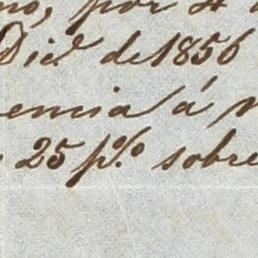 no, por 4
Dicd de 1856
encia á
25 p% sobre